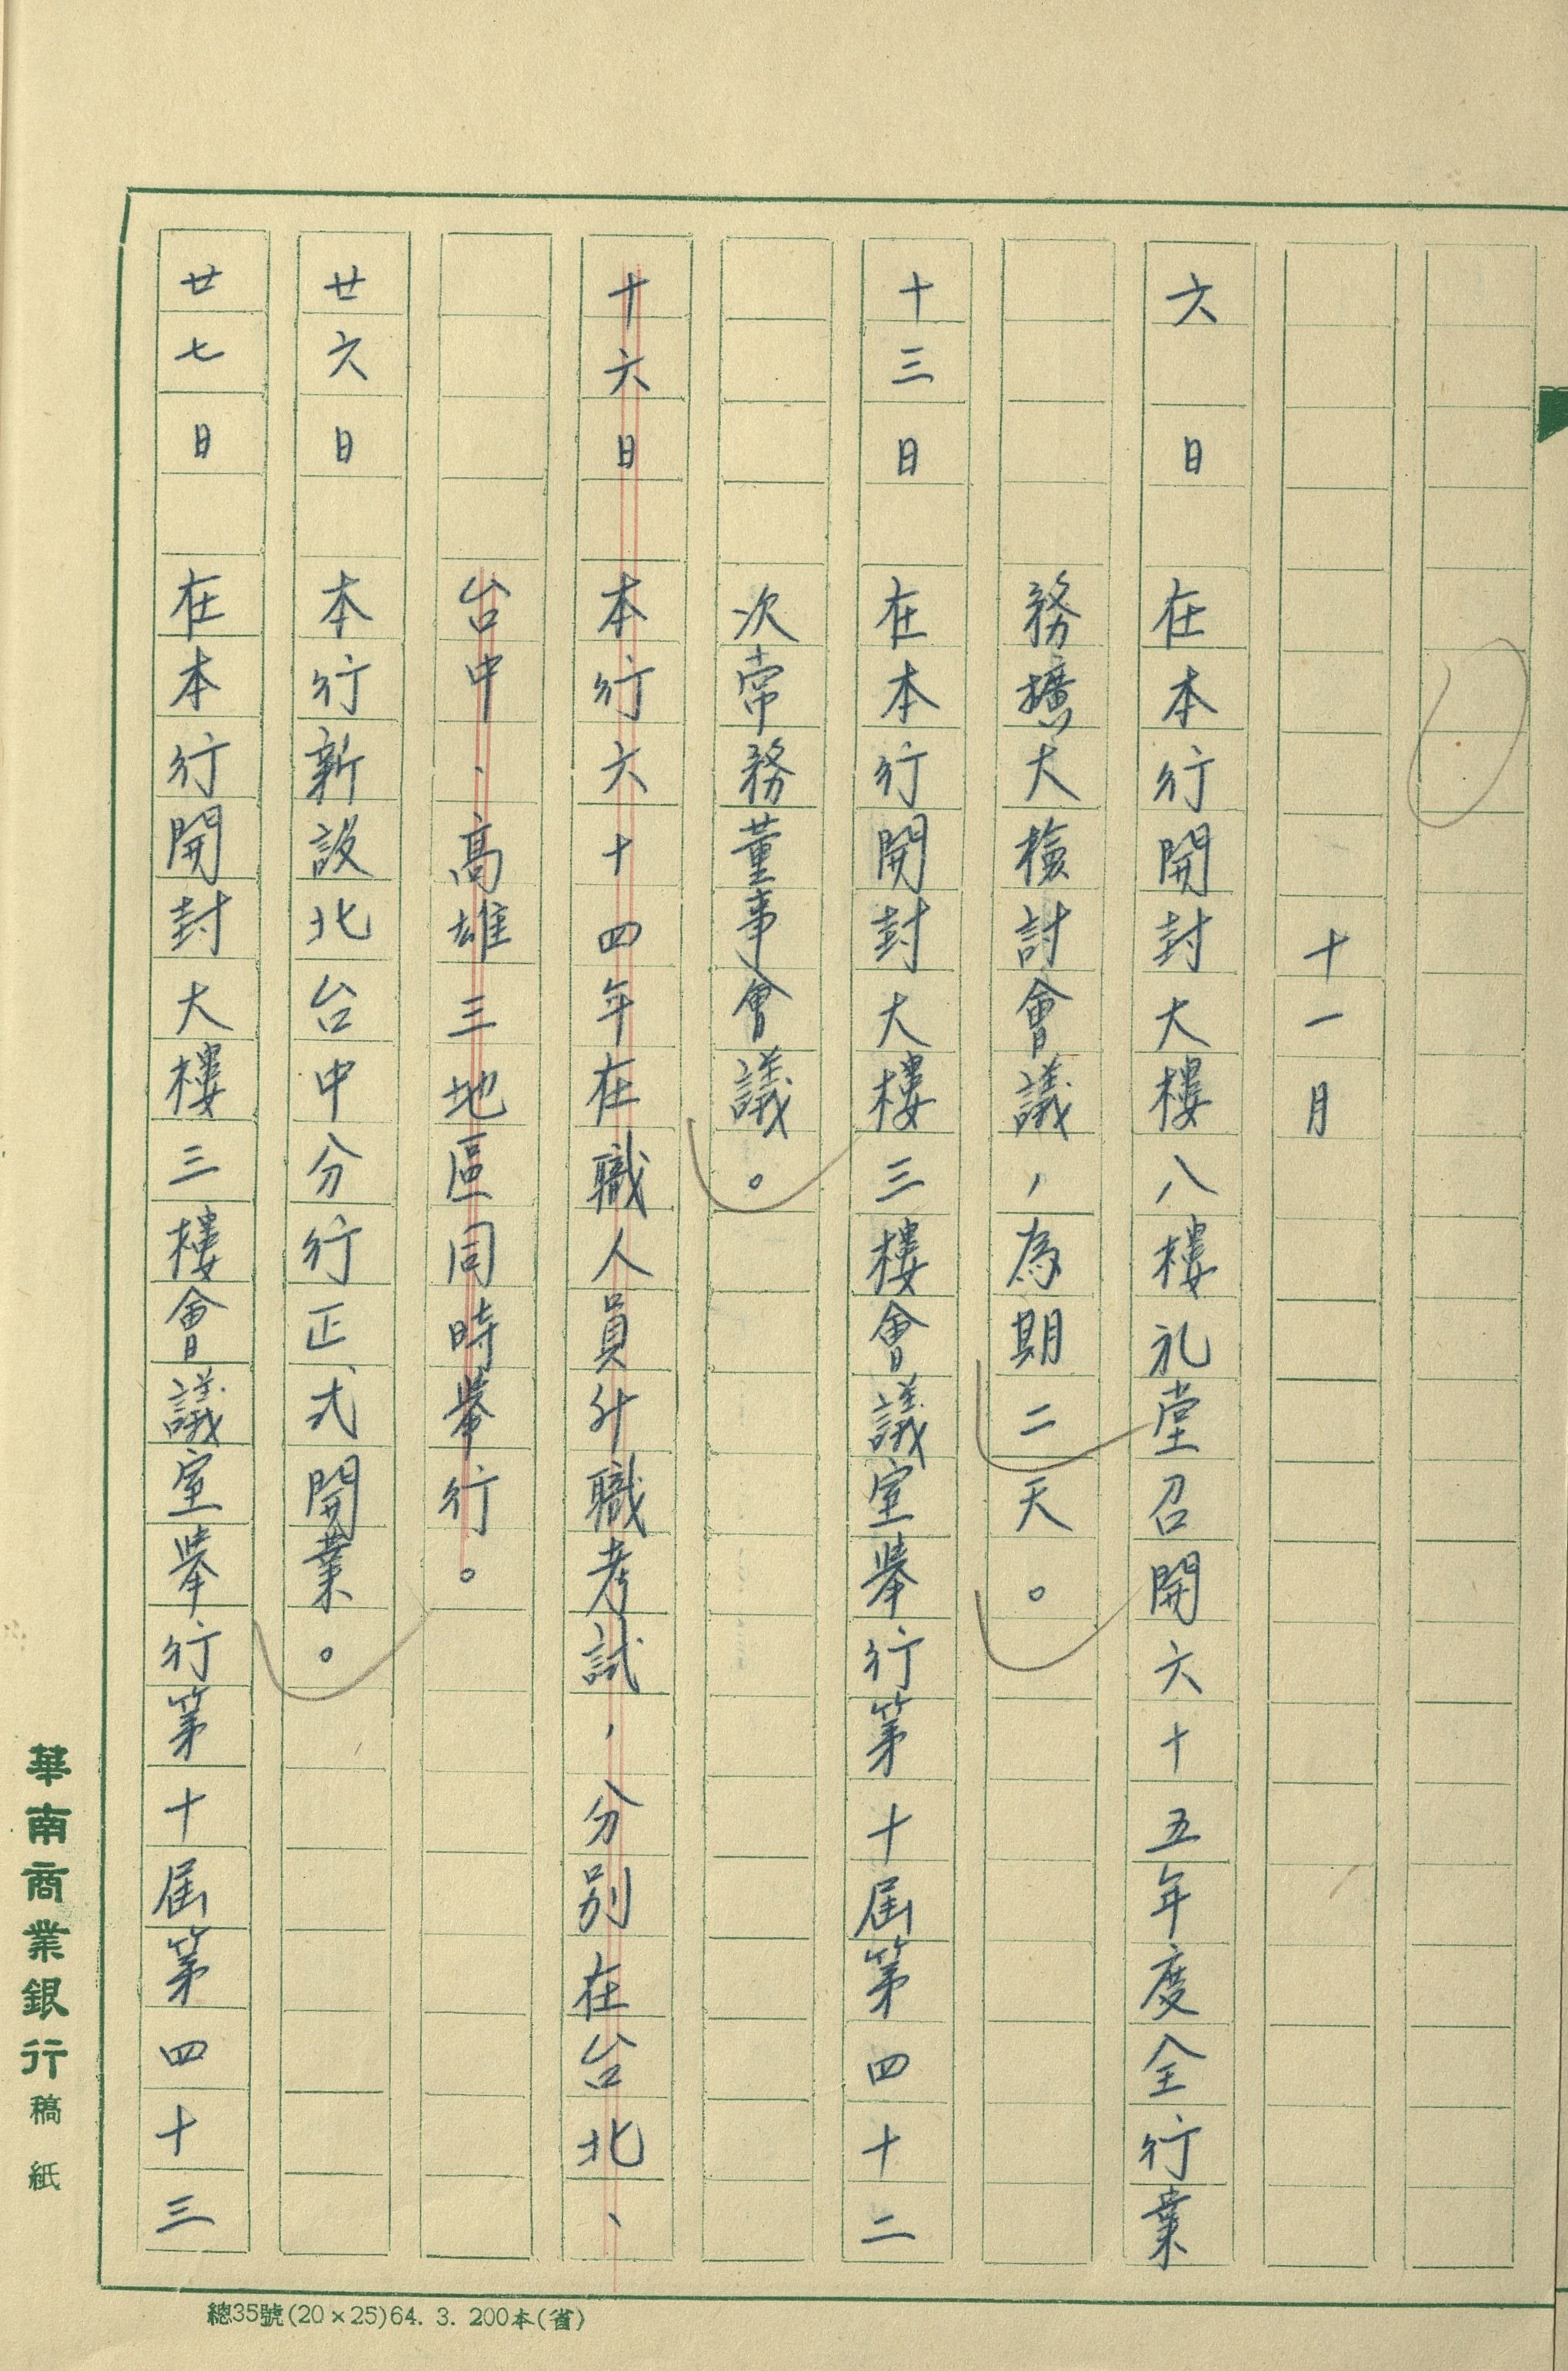 十一月
六日　在本行開封大樓八樓礼堂召開六十五年度全行業
務擴大檢討會議，為期二天。
十三日　在本行開封大樓三樓會議室舉行第十屆第四十二
次常務董事會議。
十六日　本行六十四年在職人員升職考試，分別在台北、
台中、高雄三地區同時舉行。
廿六日　本行新設北台中分行正式開業。
廿七日　在本行開封大樓三樓會議室舉行第十屆第四十三
華南商業銀行稿紙
總35號(20×25)64. 3. 200本(省)